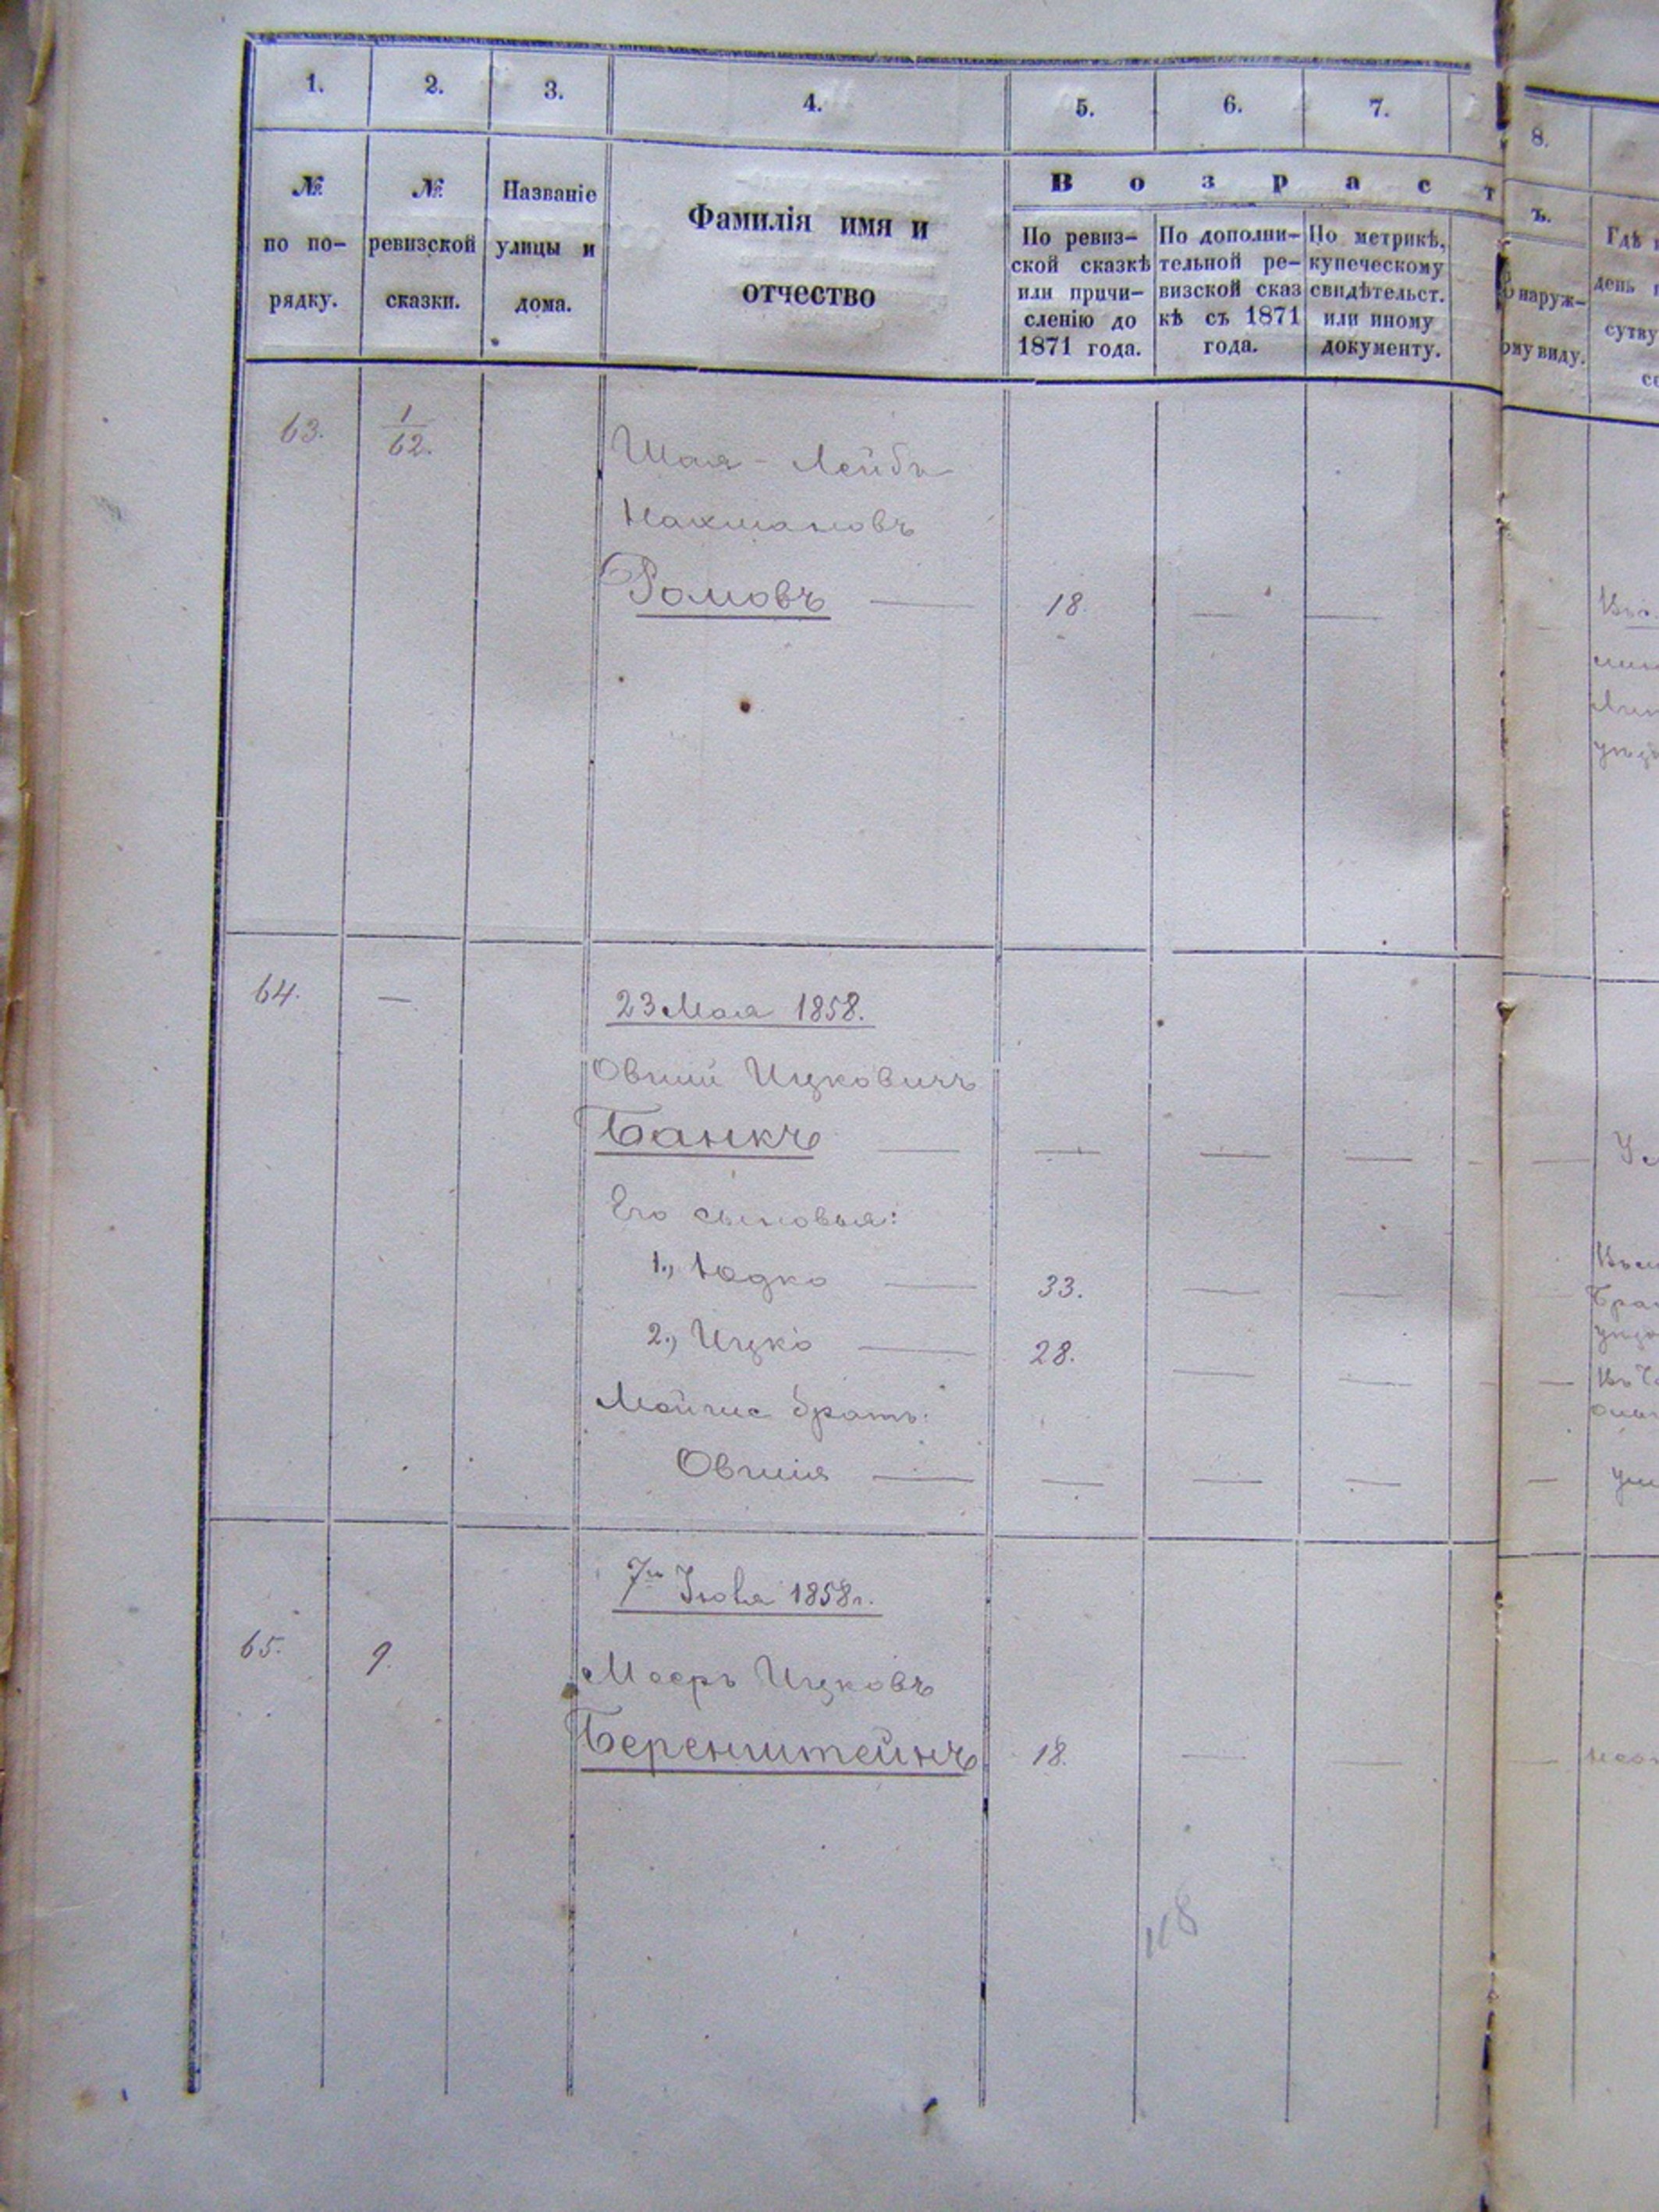 1. 2. 3. 4. 5. 6. 7. 8.
№ по по-рядку.
№ ревизской сказки.
Названіе улицы и дома.
Фамилія имя и отчество
Возрастъ.
По ревиз-
ской сказкѣ
или причи-
сленію до
1871 года.
По дополни-
тельной ре-
визской сказ
кѣ съ 1871
года.
По метрикѣ,
купеческому
свидѣтельст.
или иному
документу.
наруж-
ому виду.
Гдѣ
день
сутку
63. 1/62. Шая-Лейбъ
Нахмановъ
Ромовъ — 18. — —
64. — 23 Мая 1858.
Овший Ицковичъ
Банкъ — — — —
Его сыновья:
1., Юдко — 33. — —
2., Ицко — 28. — —
братъ:
Овшія — — — —
7го Іюля 1858г.
65. 9. Мееръ Ицковъ
Беренштейнъ 18. — —
118